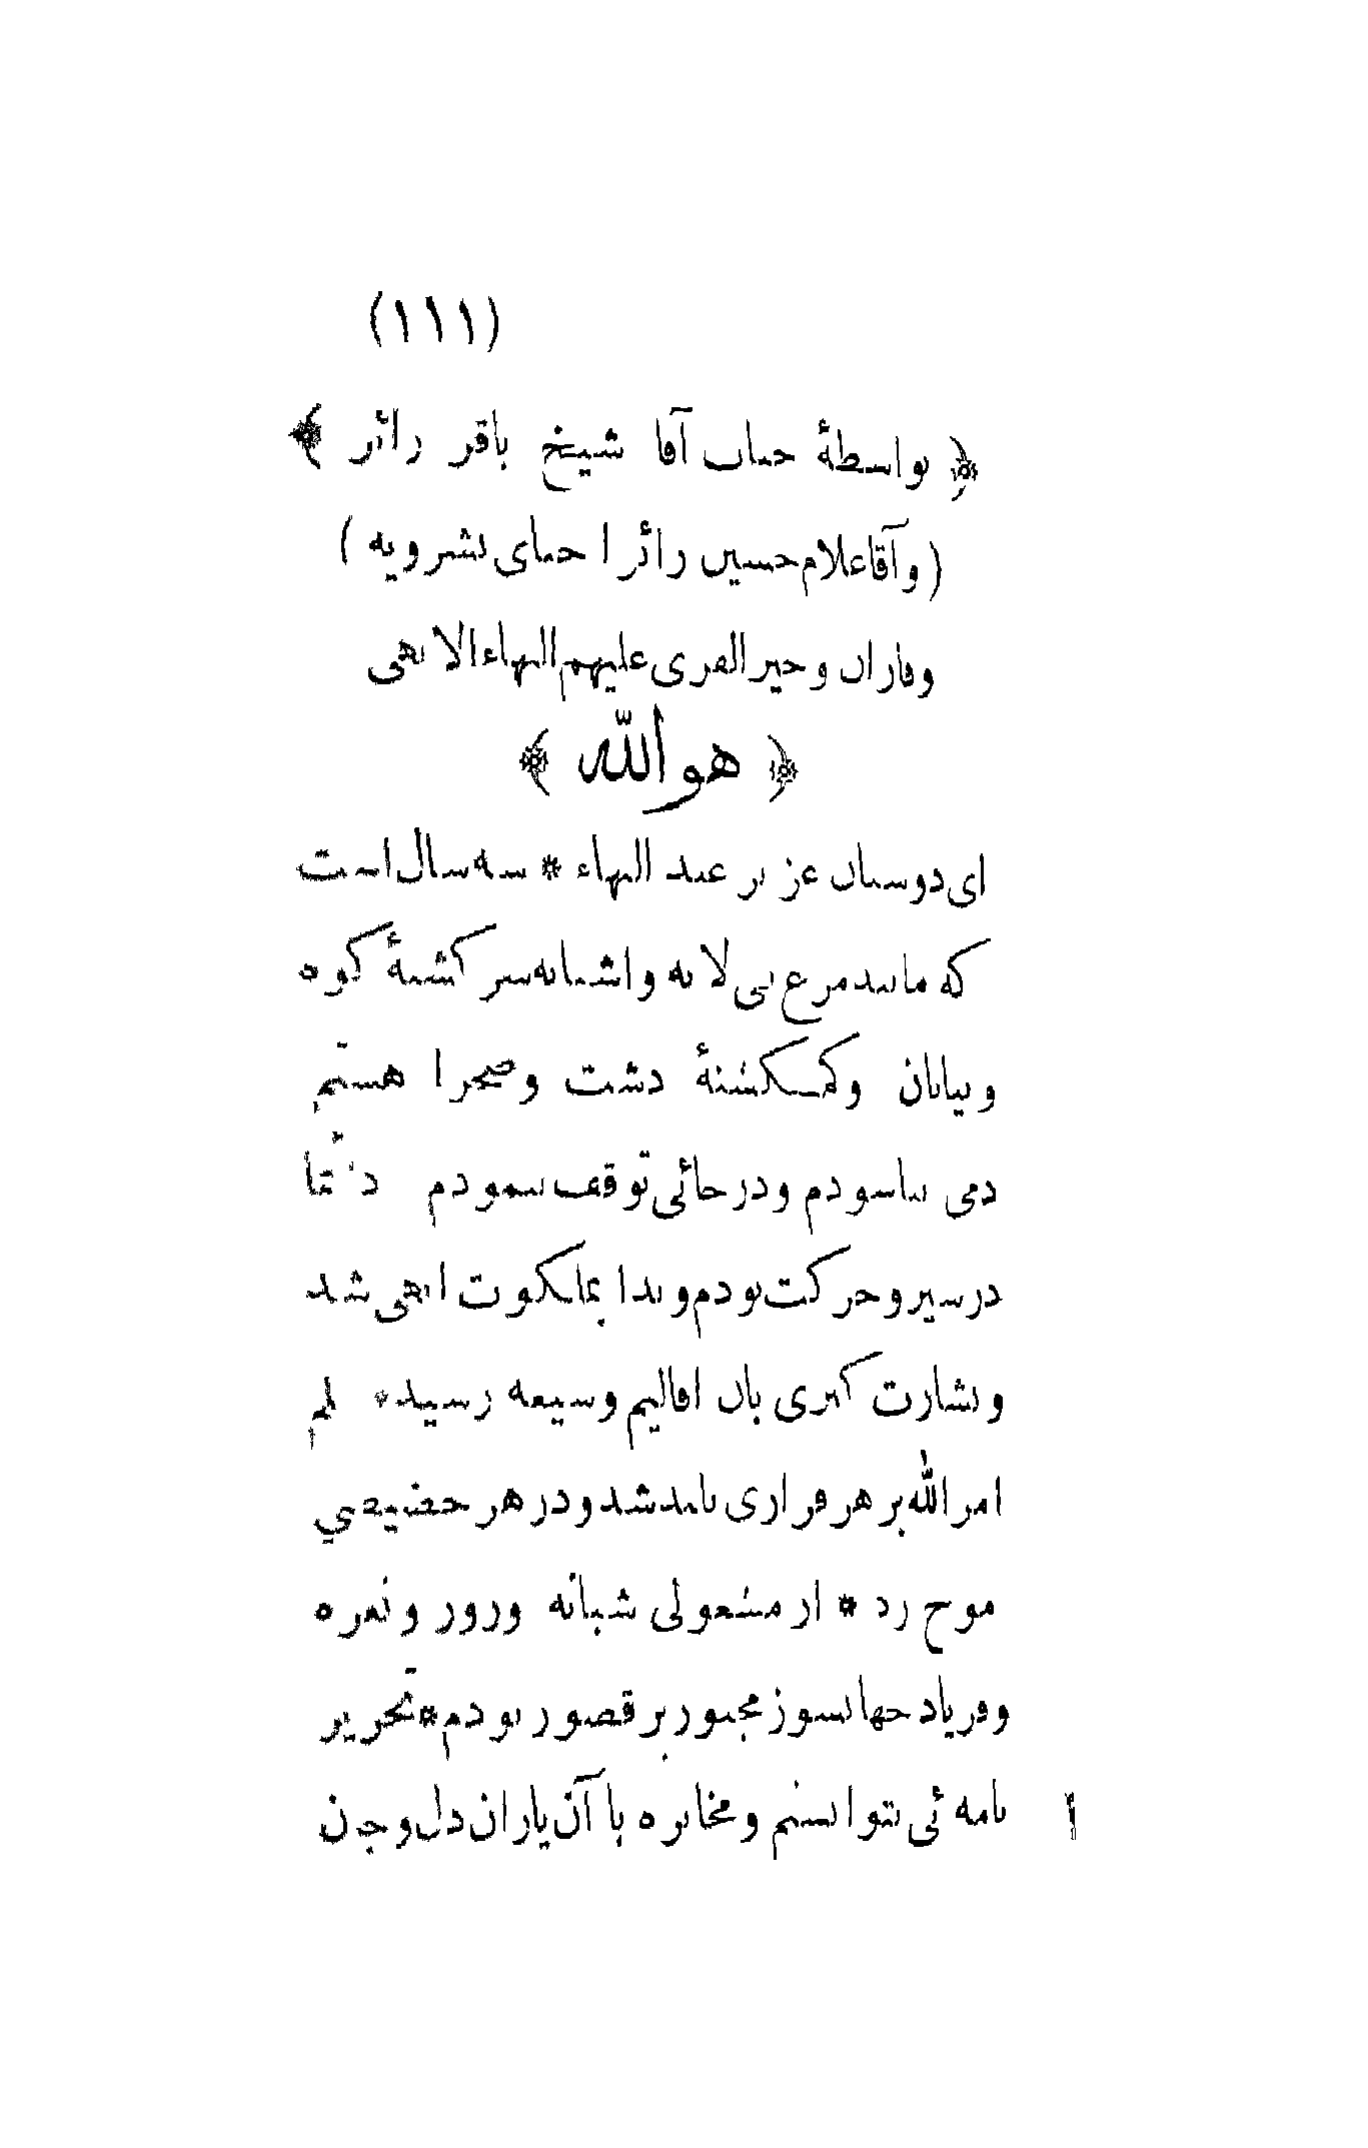 (۱۱۱)
﴿ بواسطهٔ جناب آقا شیخ باقر زائر ﴾
( و آقا غلام حسین زائر احبای بشرویه )
وفاران وخیر القری علیهم البهاء الابهی
﴿ هو الله ﴾
ای دوستان عزیز عبد البهاء * سه سال است
که مانند مرغ بی لانه و اشیانه سرگشتهٔ کوه
و بیابان وگمگشتهٔ دشت وصحرا هستم
دمی نیاسودم ودر جائی توقف ننمودم دائما
در سیر و حرکت بودم و ندا بملکوت ابهی شد
و بشارت کبری بان اقالیم وسیعه رسید * علم
امر الله بر هر فرازی بلند شد و در هر حضیضی
موج زد * از مشغولی شبانه وروز و نعره
و فریاد جهانسوز مجبور بر قصور بودم * تحریر
نامه ئی نتوانستم و مخابره با آن یاران دل و جان